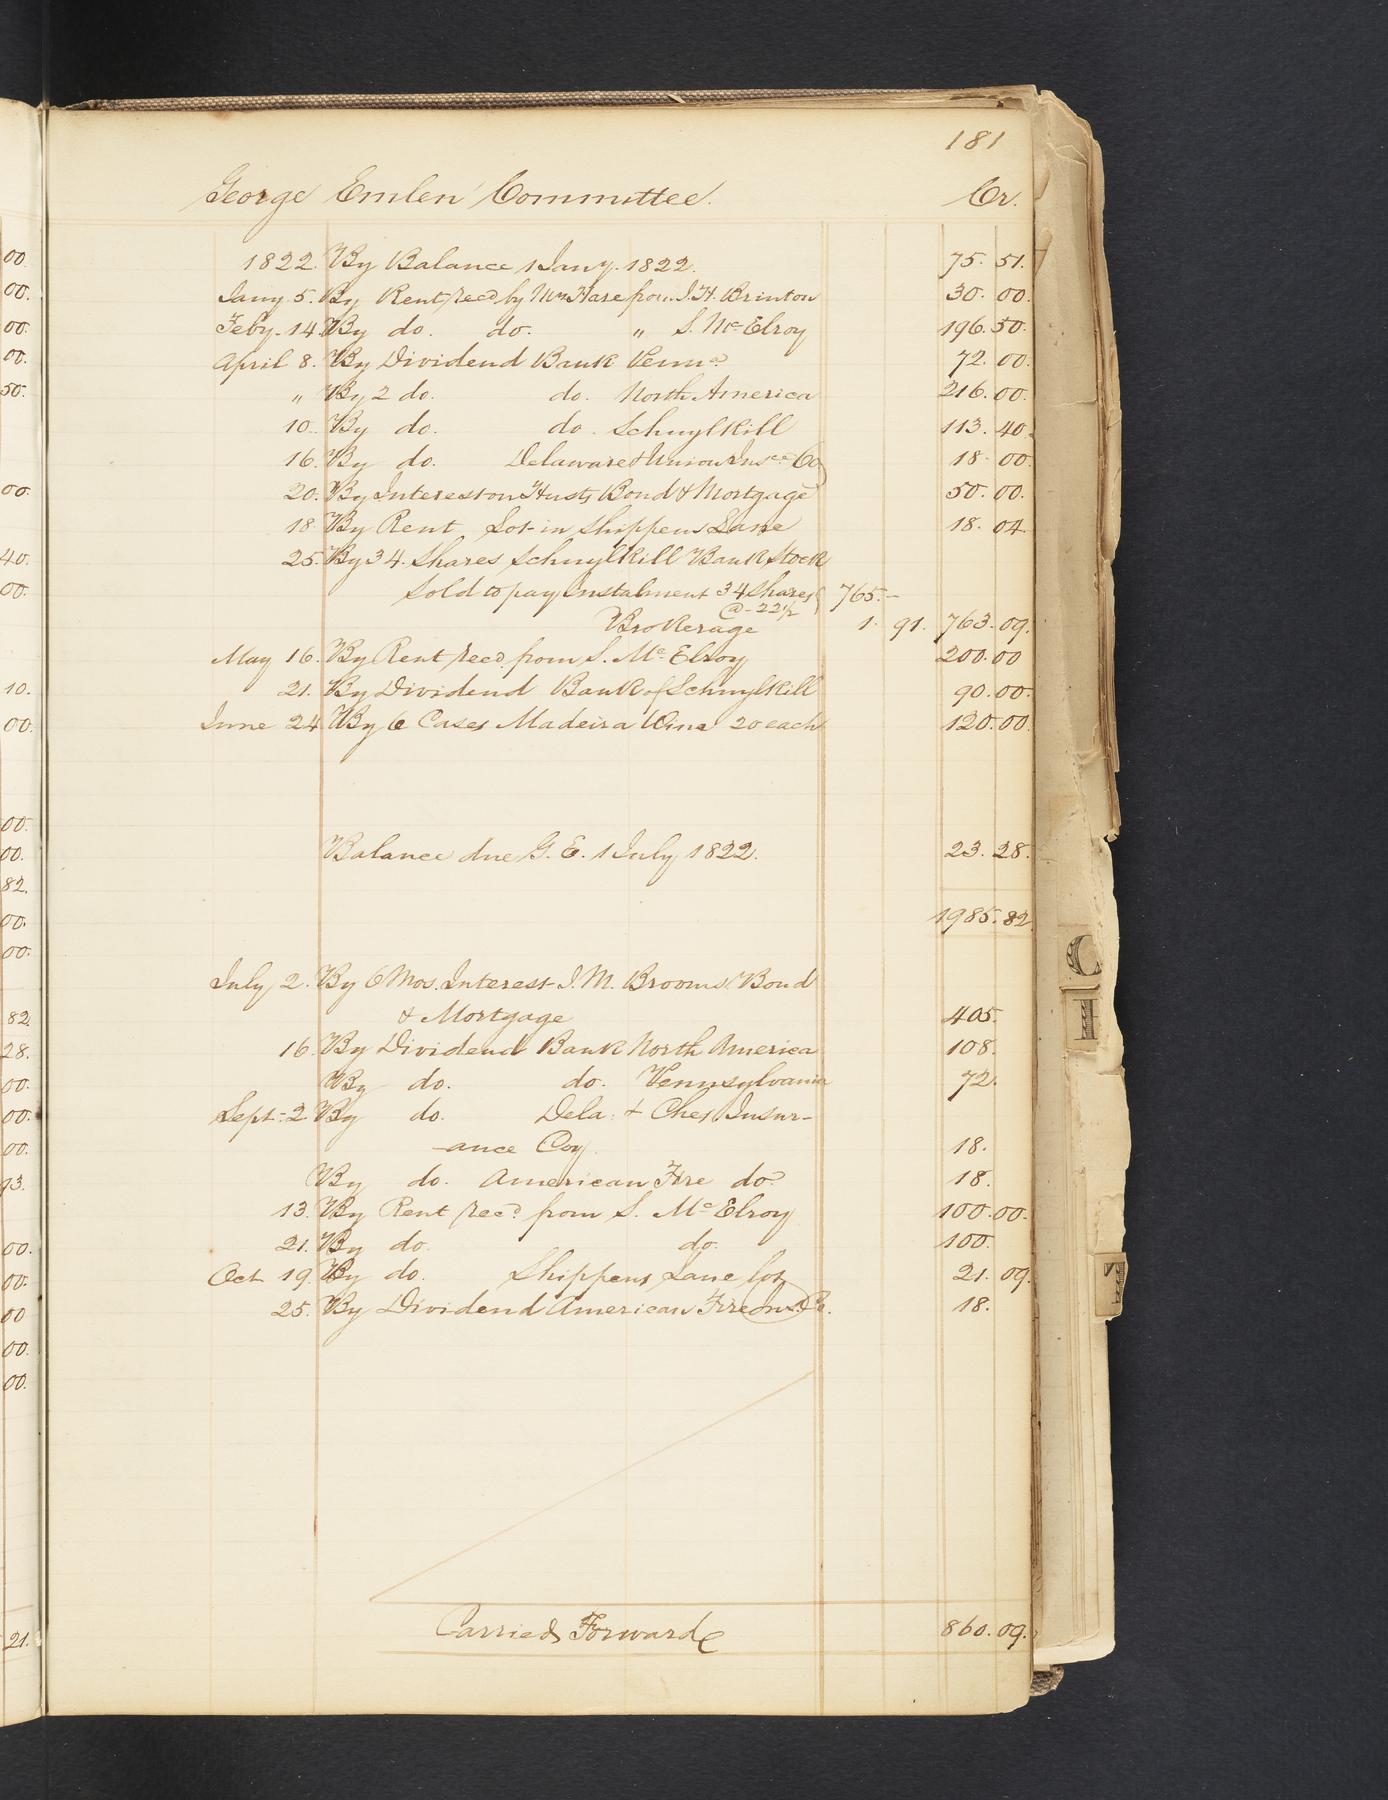 181
George Emlen Committee. Cr.
1822. By Balance 1 Jany. 1822. 75. 51.
Jany 5. By Rent recd by Wm Hare from J. H. Brinton 30. 00.
Feby. 14 By do. do. " S. McElroy 196. 50.
April 8. By Dividend Bank Penna. 72. 00.
" By 2 do. do. North America 216. 00.
10. By do. do. Schuylkill 113. 40.
16. By do. Delaware & Union Insce Co 18. 00.
20. By Interest on Husts Bond & Mortgage 50. 00.
18 By Rent Lot in Shippens Lane 18. 04.
25. By 34. Shares Schuylkill Bank Stock
Sold to pay Instalment 34 Shares 765. –
@ 22 1/2
Brokerage 1. 91. 763. 09.
May 16. By Rent recd. from S. McElroy 200. 00
21. By Dividend Bank of Schuylkill 90. 00.
June 24 By 6 Cases Madeira Wine 20 each 120. 00.
Balance due G. E. 1 July 1822. 23. 28.
1985. 82.
July 2. By 6 Mos. Interest J. M. Brooms Bond
& Mortgage 405.
16. By Dividend Bank North America 108.
By do. do. Pennsylvania 72.
Sept. 2 By do. Dela. & Ches Insur-
ance Coy. 18.
By do. American Fire do. 18.
13. By Rent recd. from S. McElroy 100. 00.
21. By do. do. 100.
Oct 19. By do. Shippens Lane lot 21. 09.
25. By Dividend American Fire Ins. Co. 18.
Carried Forward 860. 09.
00.
00.
00.
00.
50.
00.
40.
00.
10.
00.
00.
00.
82.
00.
00.
82
28.
00.
00.
00.
93.
00.
00.
00
00.
00.
21.
C
I